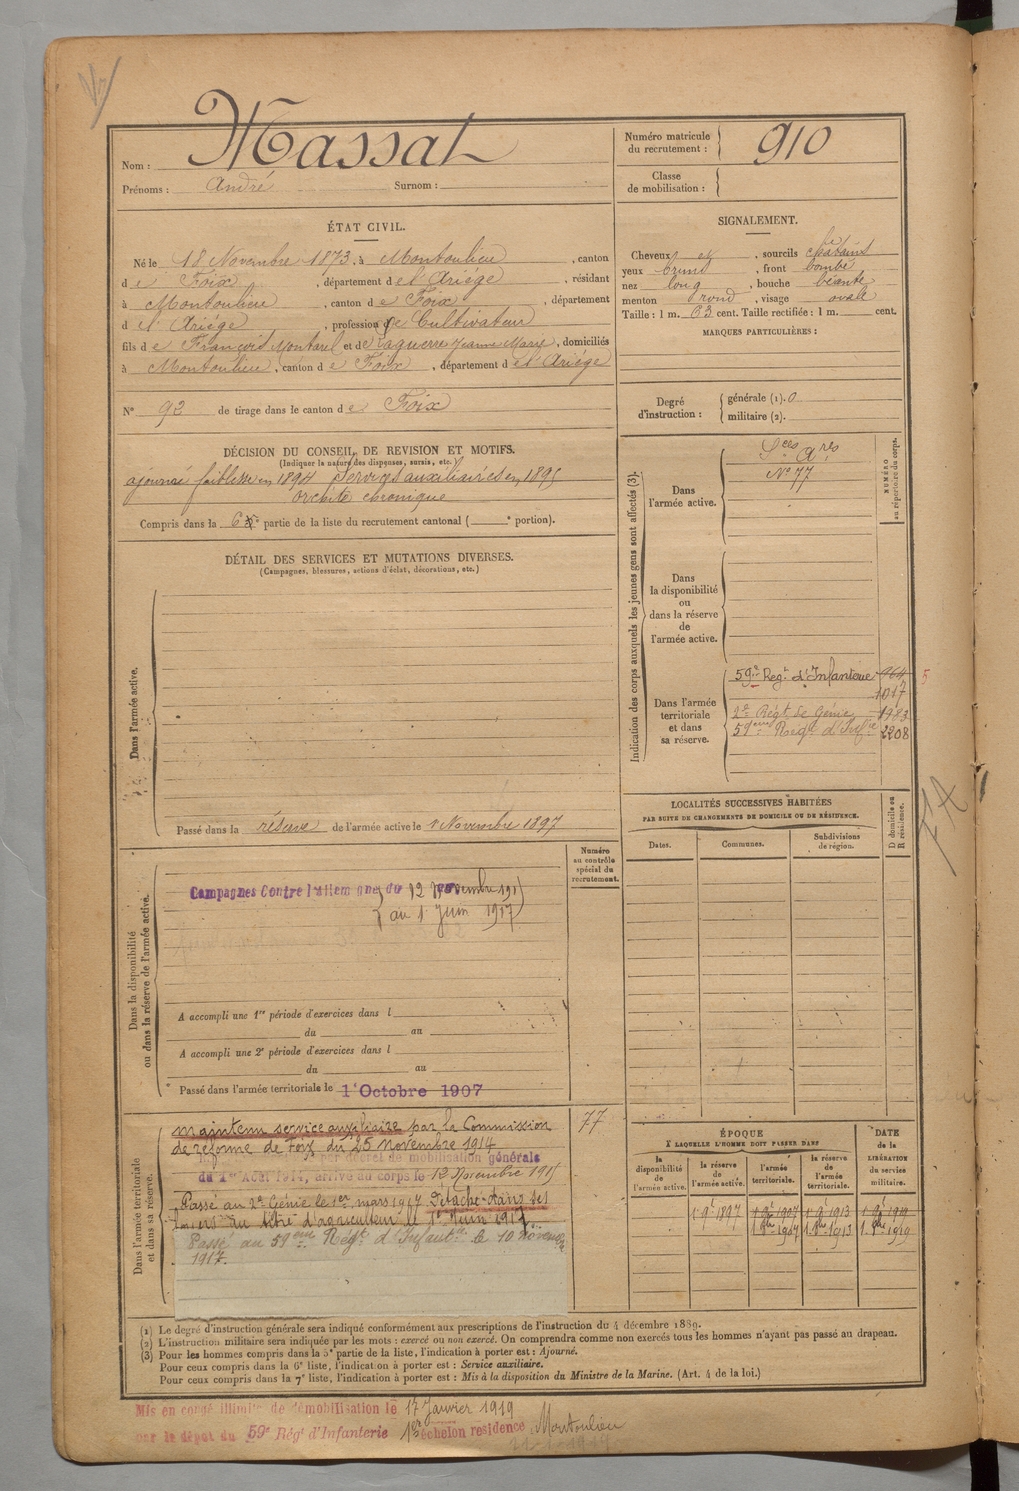 Nom : Massat
Prénoms : André Surnom :
Numéro matricule
du recrutement : 910
Classe
de mobilisation :
ÉTAT CIVIL.
Né le 18 Novembre 1873, à Montoulieu, canton
de Foix, département de l'Ariége, résidant
à Montoulieu, canton de Foix, département
de l'Ariége, profession de Cultivateur
fils de François Montarel et de Laguerre Jeanne Marie, domiciliés
à Montoulieu, canton de Foix, département de l'Ariége
N° 92 de tirage dans le canton de Foix
SIGNALEMENT.
Cheveux et, sourcils châtains
yeux bruns, front bombé
nez long, bouche béante
menton rond, visage ovale
Taille : 1 m. 63 cent. Taille rectifiée : 1 m. cent.
MARQUES PARTICULIÈRES :
Degré
d'instruction :
générale (1). 0
militaire (2).
DÉCISION DU CONSEIL DE REVISION ET MOTIFS.
(Indiquer la nature des dispenses, sursis, etc.)
ajourné faiblesse en 1894 Services auxiliaires en 1895
orchite chronique
Compris dans la 6e partie de la liste du recrutement cantonal ( e portion).
DÉTAIL DES SERVICES ET MUTATIONS DIVERSES.
(Campagnes, blessures, actions d'éclat, décorations, etc.)
Dans l'armée active.
Passé dans la réserve de l'armée active le 1 Novembre 1897
Indication des corps auxquels les jeunes gens sont affectés (3).
NUMÉRO
au répertoire du corps.
Dans
l'armée active.
Sces Ares
N° 77
Dans
la disponibilité
ou
dans la réserve
de
l'armée active.
Dans l'armée
territoriale
et dans
sa réserve.
59e Regt d'Infanterie 964 5
1017
2e Régt de Génie 1983
59ème Régt d'Infie 2208
LOCALITÉS SUCCESSIVES HABITÉES
PAR SUITE DE CHANGEMENTS DE DOMICILE OU DE RÉSIDENCE.
D domicile ou
R résidence.
Dates.
Communes.
Subdivisions
de région.
77
Numéro
au contrôle
spécial du
recrutement.
Dans la disponibilité
ou dans la réserve de l'armée active.
Campagnes Contre l'allemagne du 12 Novembre 1915
au 1 Juin 1917
A accompli une 1re période d'exercices dans l
du au
A accompli une 2e période d'exercices dans l
du au
Passé dans l'armée territoriale le 1er Octobre 1907
Dans l'armée territoriale
et dans sa réserve.
maintenu service auxiliaire par la Commission
de réforme de Foix du 25 novembre 1914
77
par décret de mobilisation générale
du 1er Août 1914, arrivé au corps le 12 Novembre 1915
Passé au 2e Génie le 1er mars 1917 Détaché dans ses
foyers au titre d'agriculteur le 1er Juin 1917.
Passé au 59ème Régt d'Infantie le 10 novembre
1917.
ÉPOQUE
À LAQUELLE L'HOMME DOIT PASSER DANS
DATE
de la
LIBÉRATION
du service
militaire.
la
disponibilité
de
l'armée active.
la réserve
de
l'armée active.
l'armée
territoriale.
la réserve
de
l'armée
territoriale.
1 9e 1897 1 9e 1907 1 9e 1913 1 9e 1919
1 8bre 1907 1 8bre 1913 1 8bre 1919
(1) Le degré d'instruction générale sera indiqué conformément aux prescriptions de l'instruction du 4 décembre 1889.
(2) L'instruction militaire sera indiquée par les mots : exercé ou non exercé. On comprendra comme non exercés tous les hommes n'ayant pas passé au drapeau.
(3) Pour les hommes compris dans la 5e partie de la liste, l'indication à porter est : Ajourné.
Pour ceux compris dans la 6e liste, l'indication à porter est : Service auxiliaire.
Pour ceux compris dans la 7e liste, l'indication à porter est : Mis à la disposition du Ministre de la Marine. (Art. 4 de la loi.)
Mis en congé illimité de démobilisation le 17 Janvier 1919
par le dépot du 59e Régt d'Infanterie 1er échelon residence Montoulieu